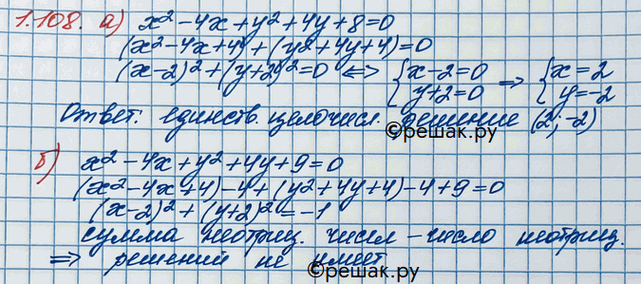 1.108. а) x² - 4x + y² + 4y + 8 = 0
(x² - 4x + 4) + (y² + 4y + 4) = 0
(x-2)² + (y+2)² = 0 ⟺ { x-2=0 y+2=0 ⇒ { x=2 y=-2
Ответ: единств. целочисл. решение (2; -2)
©решак.ру
б) x² - 4x + y² + 4y + 9 = 0
(x² - 4x + 4) - 4 + (y² + 4y + 4) - 4 + 9 = 0
(x-2)² + (y+2)² = -1
сумма неотриц. чисел - число неотриц.
⇒ решений не имеет
©решак.ру